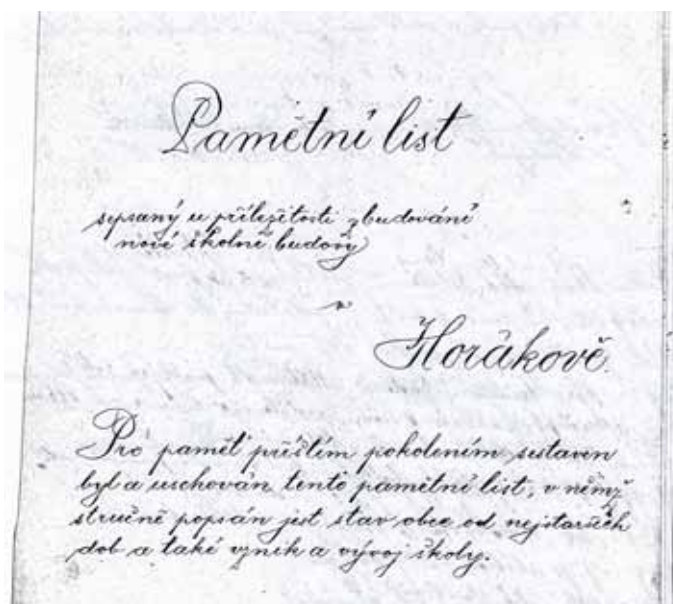 Pamětní list
sepsaný u příležitosti zbudování
nové školní budovy
v
Horákově.
Pro paměť příštím pokolením sestaven
byl a uschován tento pamětní list, v němž
stručně popsán jest stav obce od nejstarších
dob a také vznik a vývoj školy.